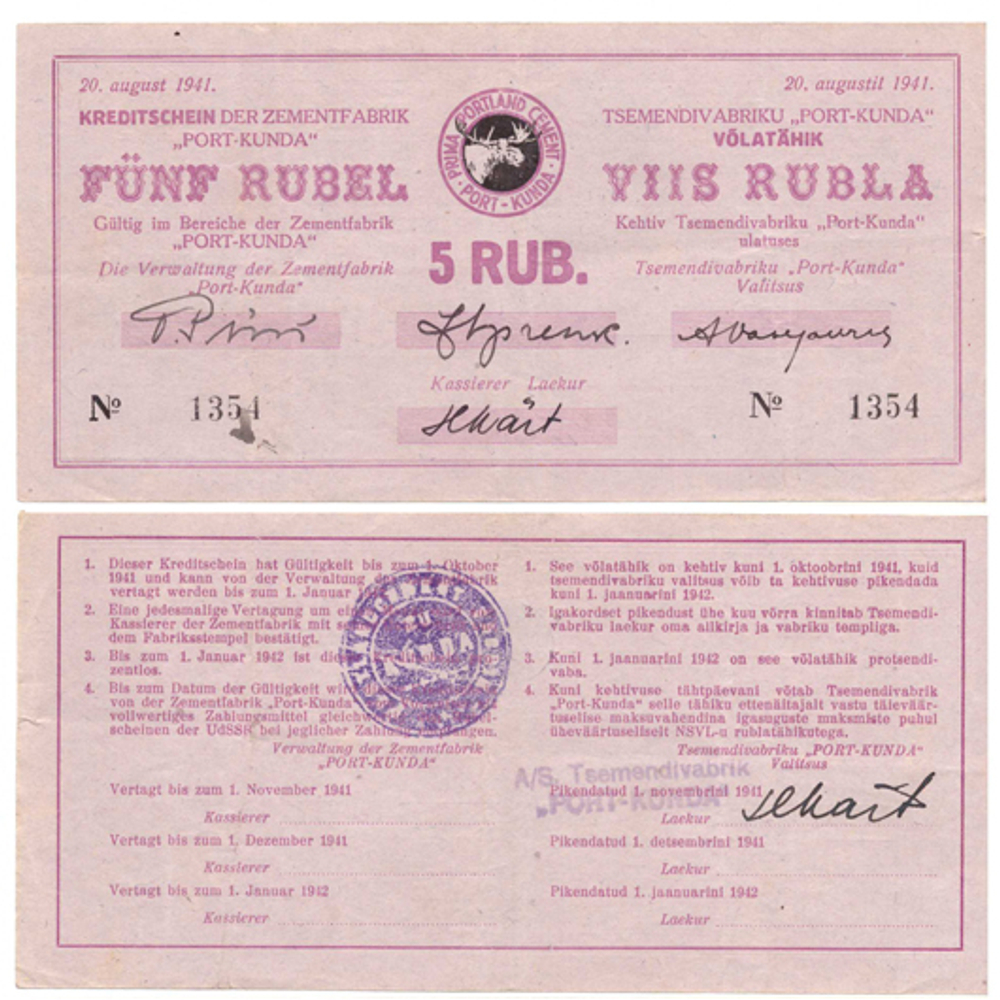 20. august 1941.
KREDITSCHEIN DER ZEMENTFABRIK
„PORT-KUNDA“
FÜNF RUBEL
Gültig im Bereiche der Zementfabrik
„PORT-KUNDA“
Die Verwaltung der Zementfabrik
„Port-Kunda“
PRIMA PORTLAND CEMENT
PORT-KUNDA
5 RUB.
20. augustil 1941.
TSEMENDIVABRIKU „PORT-KUNDA“
VÕLATÄHIK
VIIS RUBLA
Kehtiv Tsemendivabriku „Port-Kunda“
ulatuses
Tsemendivabriku „Port-Kunda“
Valitsus
Kassierer Laekur
№ 1354
№ 1354
1. Dieser Kreditschein hat Gültigkeit bis zum 1. Oktober
1941 und kann von der Verwaltung der Zementfabrik
vertagt werden bis zum 1. Januar
2. Eine jedesmalige Vertagung um
Kassierer der Zementfabrik mit
dem Fabriksstempel bestätigt.
3. Bis zum 1. Januar 1942 ist
zentlos.
4. Bis zum Datum der Gültigkeit
von der Zementfabrik „Port-Kunda
vollwertiges Zahlungsmittel
scheinen der UdSSR bei jeglicher Zahlung empfangen.
Verwaltung der Zementfabrik
„PORT-KUNDA“
Vertagt bis zum 1. November 1941
Kassierer
Vertagt bis zum 1. Dezember 1941
Kassierer
Vertagt bis zum 1. Januar 1942
Kassierer
1. See võlatähik on kehtiv kuni 1. oktoobrini 1941, kuid
tsemendivabriku valitsus võib ta kehtivuse pikendada
kuni 1. jaanuarini 1942.
2. Igakordset pikendust ühe kuu võrra kinnitab Tsemendi-
vabriku laekur oma allkirja ja vabriku templiga.
3. Kuni 1. jaanuarini 1942 on see võlatähik protsendi-
vaba.
4. Kuni kehtivuse tähtpäevani võtab Tsemendivabrik
„Port-Kunda“ selle tähiku ettenäitajalt vastu täieväär-
tuselise maksuvahendina igasuguste maksmiste puhul
üheväärtuseliselt NSVL-u rublatähikutega.
Tsemendivabriku „PORT-KUNDA“
Valitsus
A/S. Tsemendivabrik
„PORT-KUNDA“
Pikendatud 1. novembrini 1941
Laekur
Pikendatud 1. detsembrini 1941
Laekur
Pikendatud 1. jaanuarini 1942
Laekur